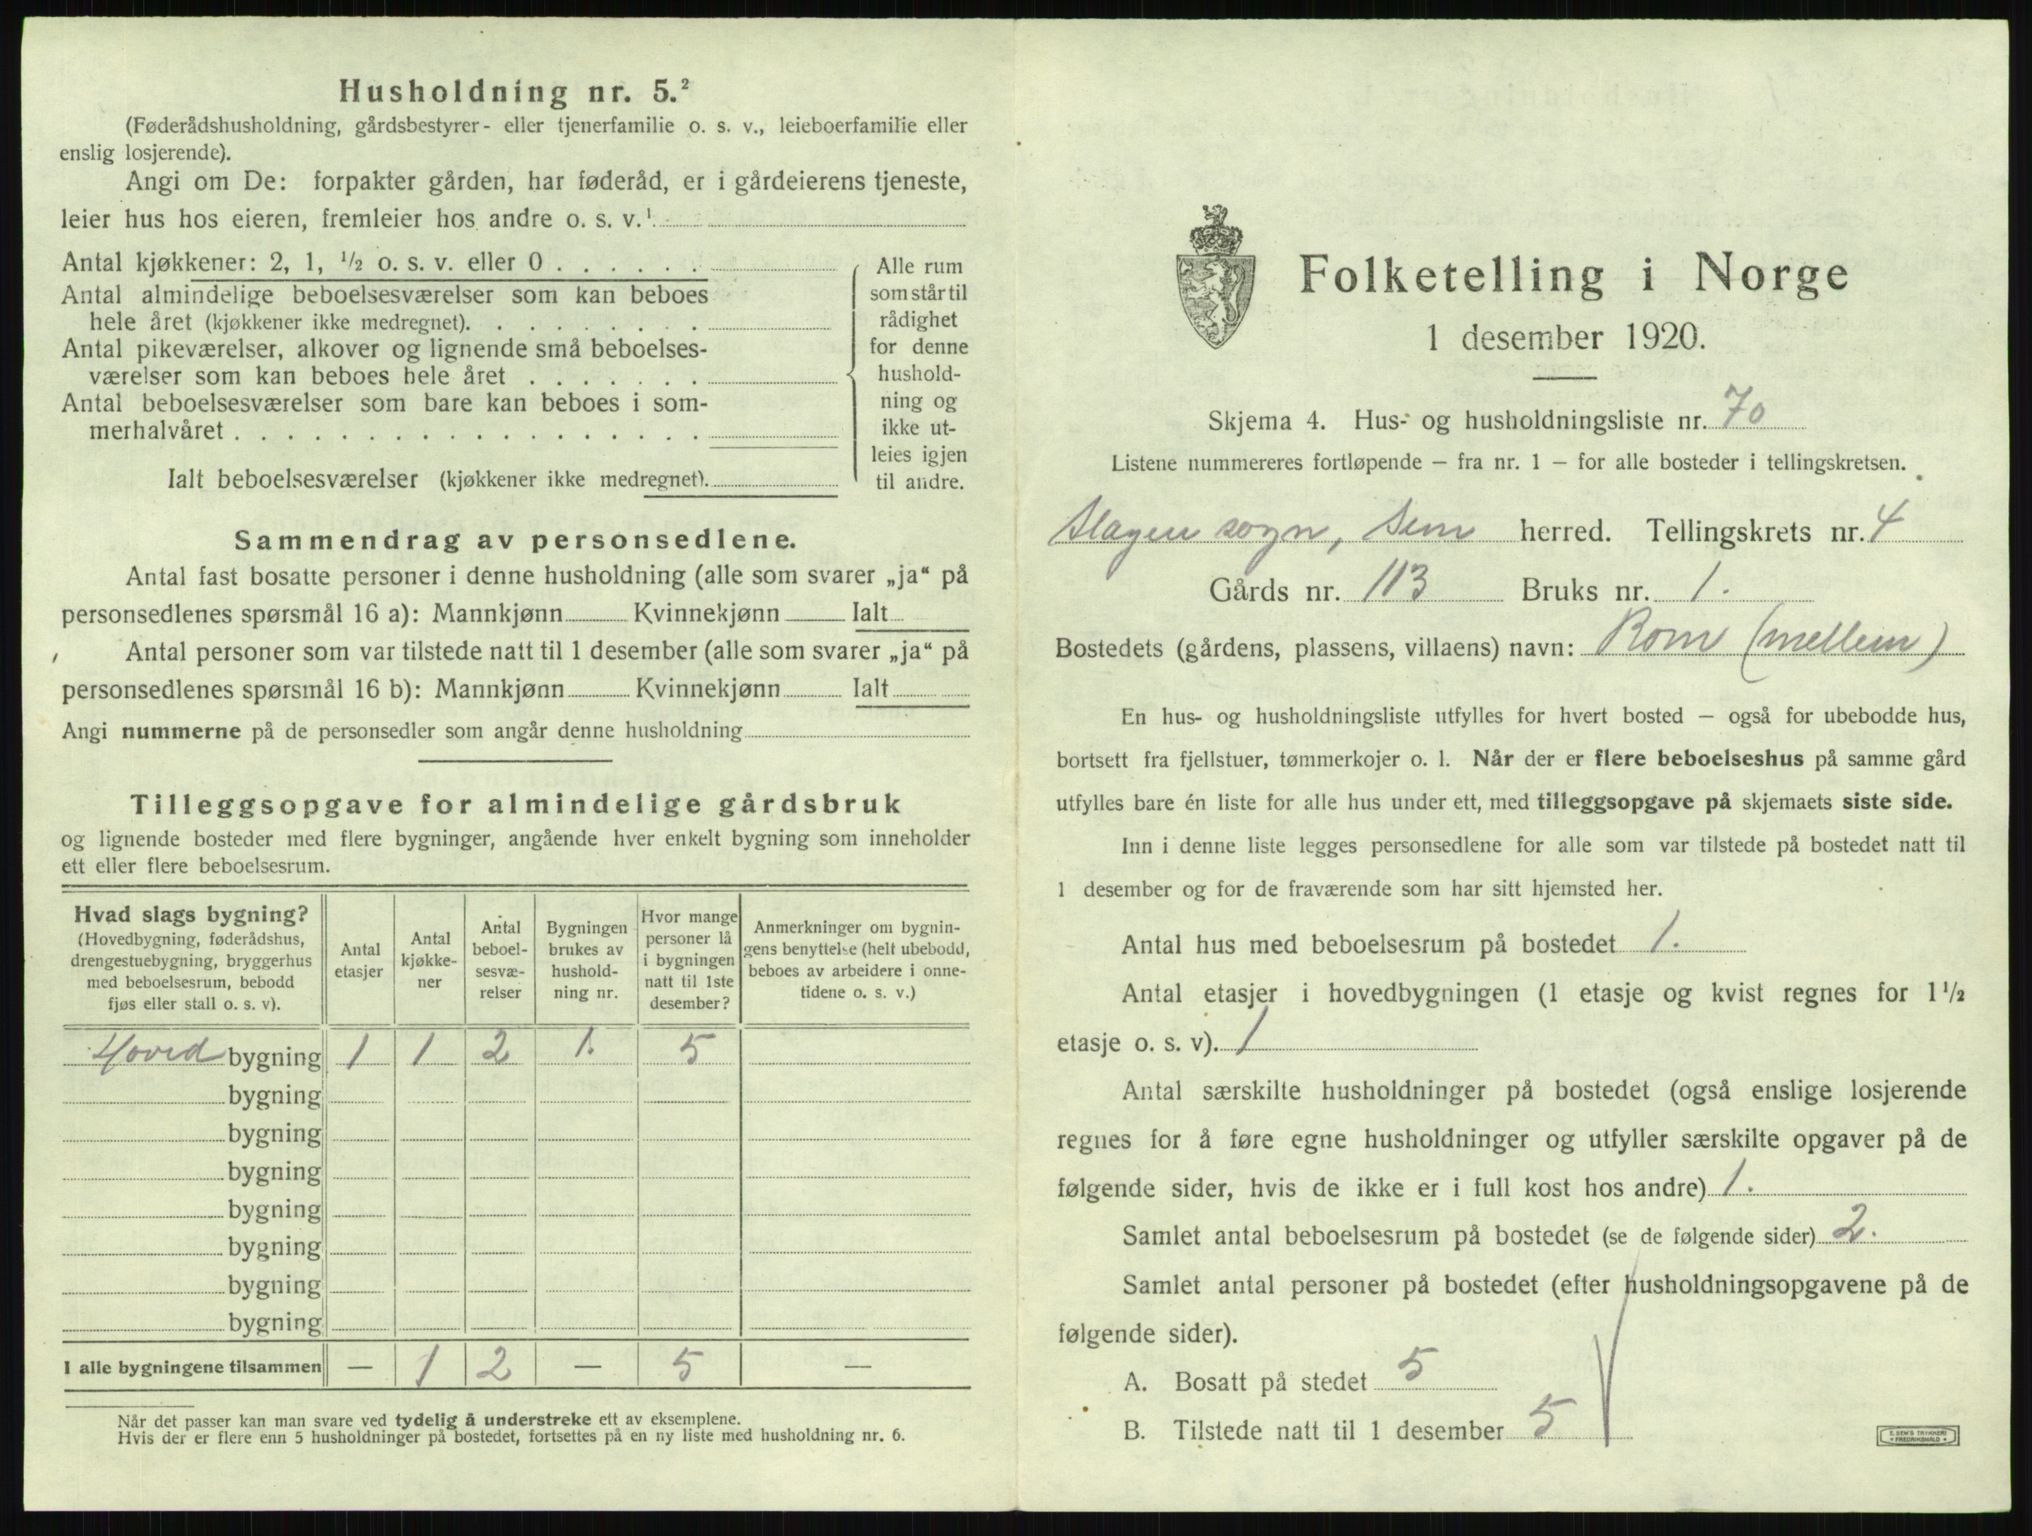 Husholdning nr. 5.²
(Føderådshusholdning, gårdsbestyrer- eller tjenerfamilie o. s. v., leieboerfamilie eller
enslig losjerende).
Angi om De: forpakter gården, har føderåd, er i gårdeierens tjeneste,
leier hus hos eieren, fremleier hos andre o. s. v.¹
Antal kjøkkener: 2, 1, ½ o. s. v. eller 0 . . . . . .
Antal almindelige beboelsesværelser som kan beboes
hele året (kjøkkener ikke medregnet). . . . . . . . .
Antal pikeværelser, alkover og lignende små beboelses-
værelser som kan beboes hele året . . . . . . .
Antal beboelsesværelser som bare kan beboes i som-
merhalvåret . . . . . . . . . . . . . . . . . .
Ialt beboelsesværelser (kjøkkener ikke medregnet).
Alle rum
som står til
rådighet
for denne
hushold-
ning og
ikke ut-
leies igjen
til andre.
Sammendrag av personsedlene.
Antal fast bosatte personer i denne husholdning (alle som svarer „ja“ på
personsedlenes spørsmål 16 a): Mannkjønn Kvinnekjønn Ialt
Antal personer som var tilstede natt til 1 desember (alle som svarer „ja“ på
personsedlenes spørsmål 16 b): Mannkjønn Kvinnekjønn Ialt
Angi nummerne på de personsedler som angår denne husholdning
Tilleggsopgave for almindelige gårdsbruk
og lignende bosteder med flere bygninger, angående hver enkelt bygning som inneholder
ett eller flere beboelsesrum.
Hvad slags bygning?
(Hovedbygning, føderådshus,
drengestuebygning, bryggerhus
med beboelsesrum, bebodd
fjøs eller stall o. s. v).
Antal
etasjer
Antal
kjøkke-
ner
Antal
beboel-
sesvæ-
relser
Bygningen
brukes av
hushold-
ning nr.
Hvor mange
personer lå
i bygningen
natt til 1ste
desember?
Anmerkninger om bygnin-
gens benyttelse (helt ubebodd,
beboes av arbeidere i onne-
tidene o. s. v.)
Hoved bygning 1 1 2 1. 5
bygning
bygning
bygning
bygning
bygning
bygning
bygning
I alle bygningene tilsammen — 1 2 — 5 —
Når det passer kan man svare ved tydelig å understreke ett av eksemplene.
Hvis der er flere enn 5 husholdninger på bostedet, fortsettes på en ny liste med husholdning nr. 6.
Folketelling i Norge
1 desember 1920.
Skjema 4. Hus- og husholdningsliste nr. 70
Listene nummereres fortløpende – fra nr. 1 – for alle bosteder i tellingskretsen.
Slagen sogn, Sem herred. Tellingskrets nr. 4
Gårds nr. 113 Bruks nr. 1.
Bostedets (gårdens, plassens, villaens) navn: Rom (mellem)
En hus- og husholdningsliste utfylles for hvert bosted – også for ubebodde hus,
bortsett fra fjellstuer, tømmerkojer o. l. Når der er flere beboelseshus på samme gård
utfylles bare én liste for alle hus under ett, med tilleggsopgave på skjemaets siste side.
Inn i denne liste legges personsedlene for alle som var tilstede på bostedet natt til
1 desember og for de fraværende som har sitt hjemsted her.
Antal hus med beboelsesrum på bostedet 1.
Antal etasjer i hovedbygningen (1 etasje og kvist regnes for 1½
etasje o. s. v). 1
Antal særskilte husholdninger på bostedet (også enslige losjerende
regnes for å føre egne husholdninger og utfyller særskilte opgaver på de
følgende sider, hvis de ikke er i full kost hos andre) 1.
Samlet antal beboelsesrum på bostedet (se de følgende sider) 2.
Samlet antal personer på bostedet (efter husholdningsopgavene på de
følgende sider).
A. Bosatt på stedet 5
B. Tilstede natt til 1 desember 5
E. SEM'S TRYKKERI
FREDRIKSHALD